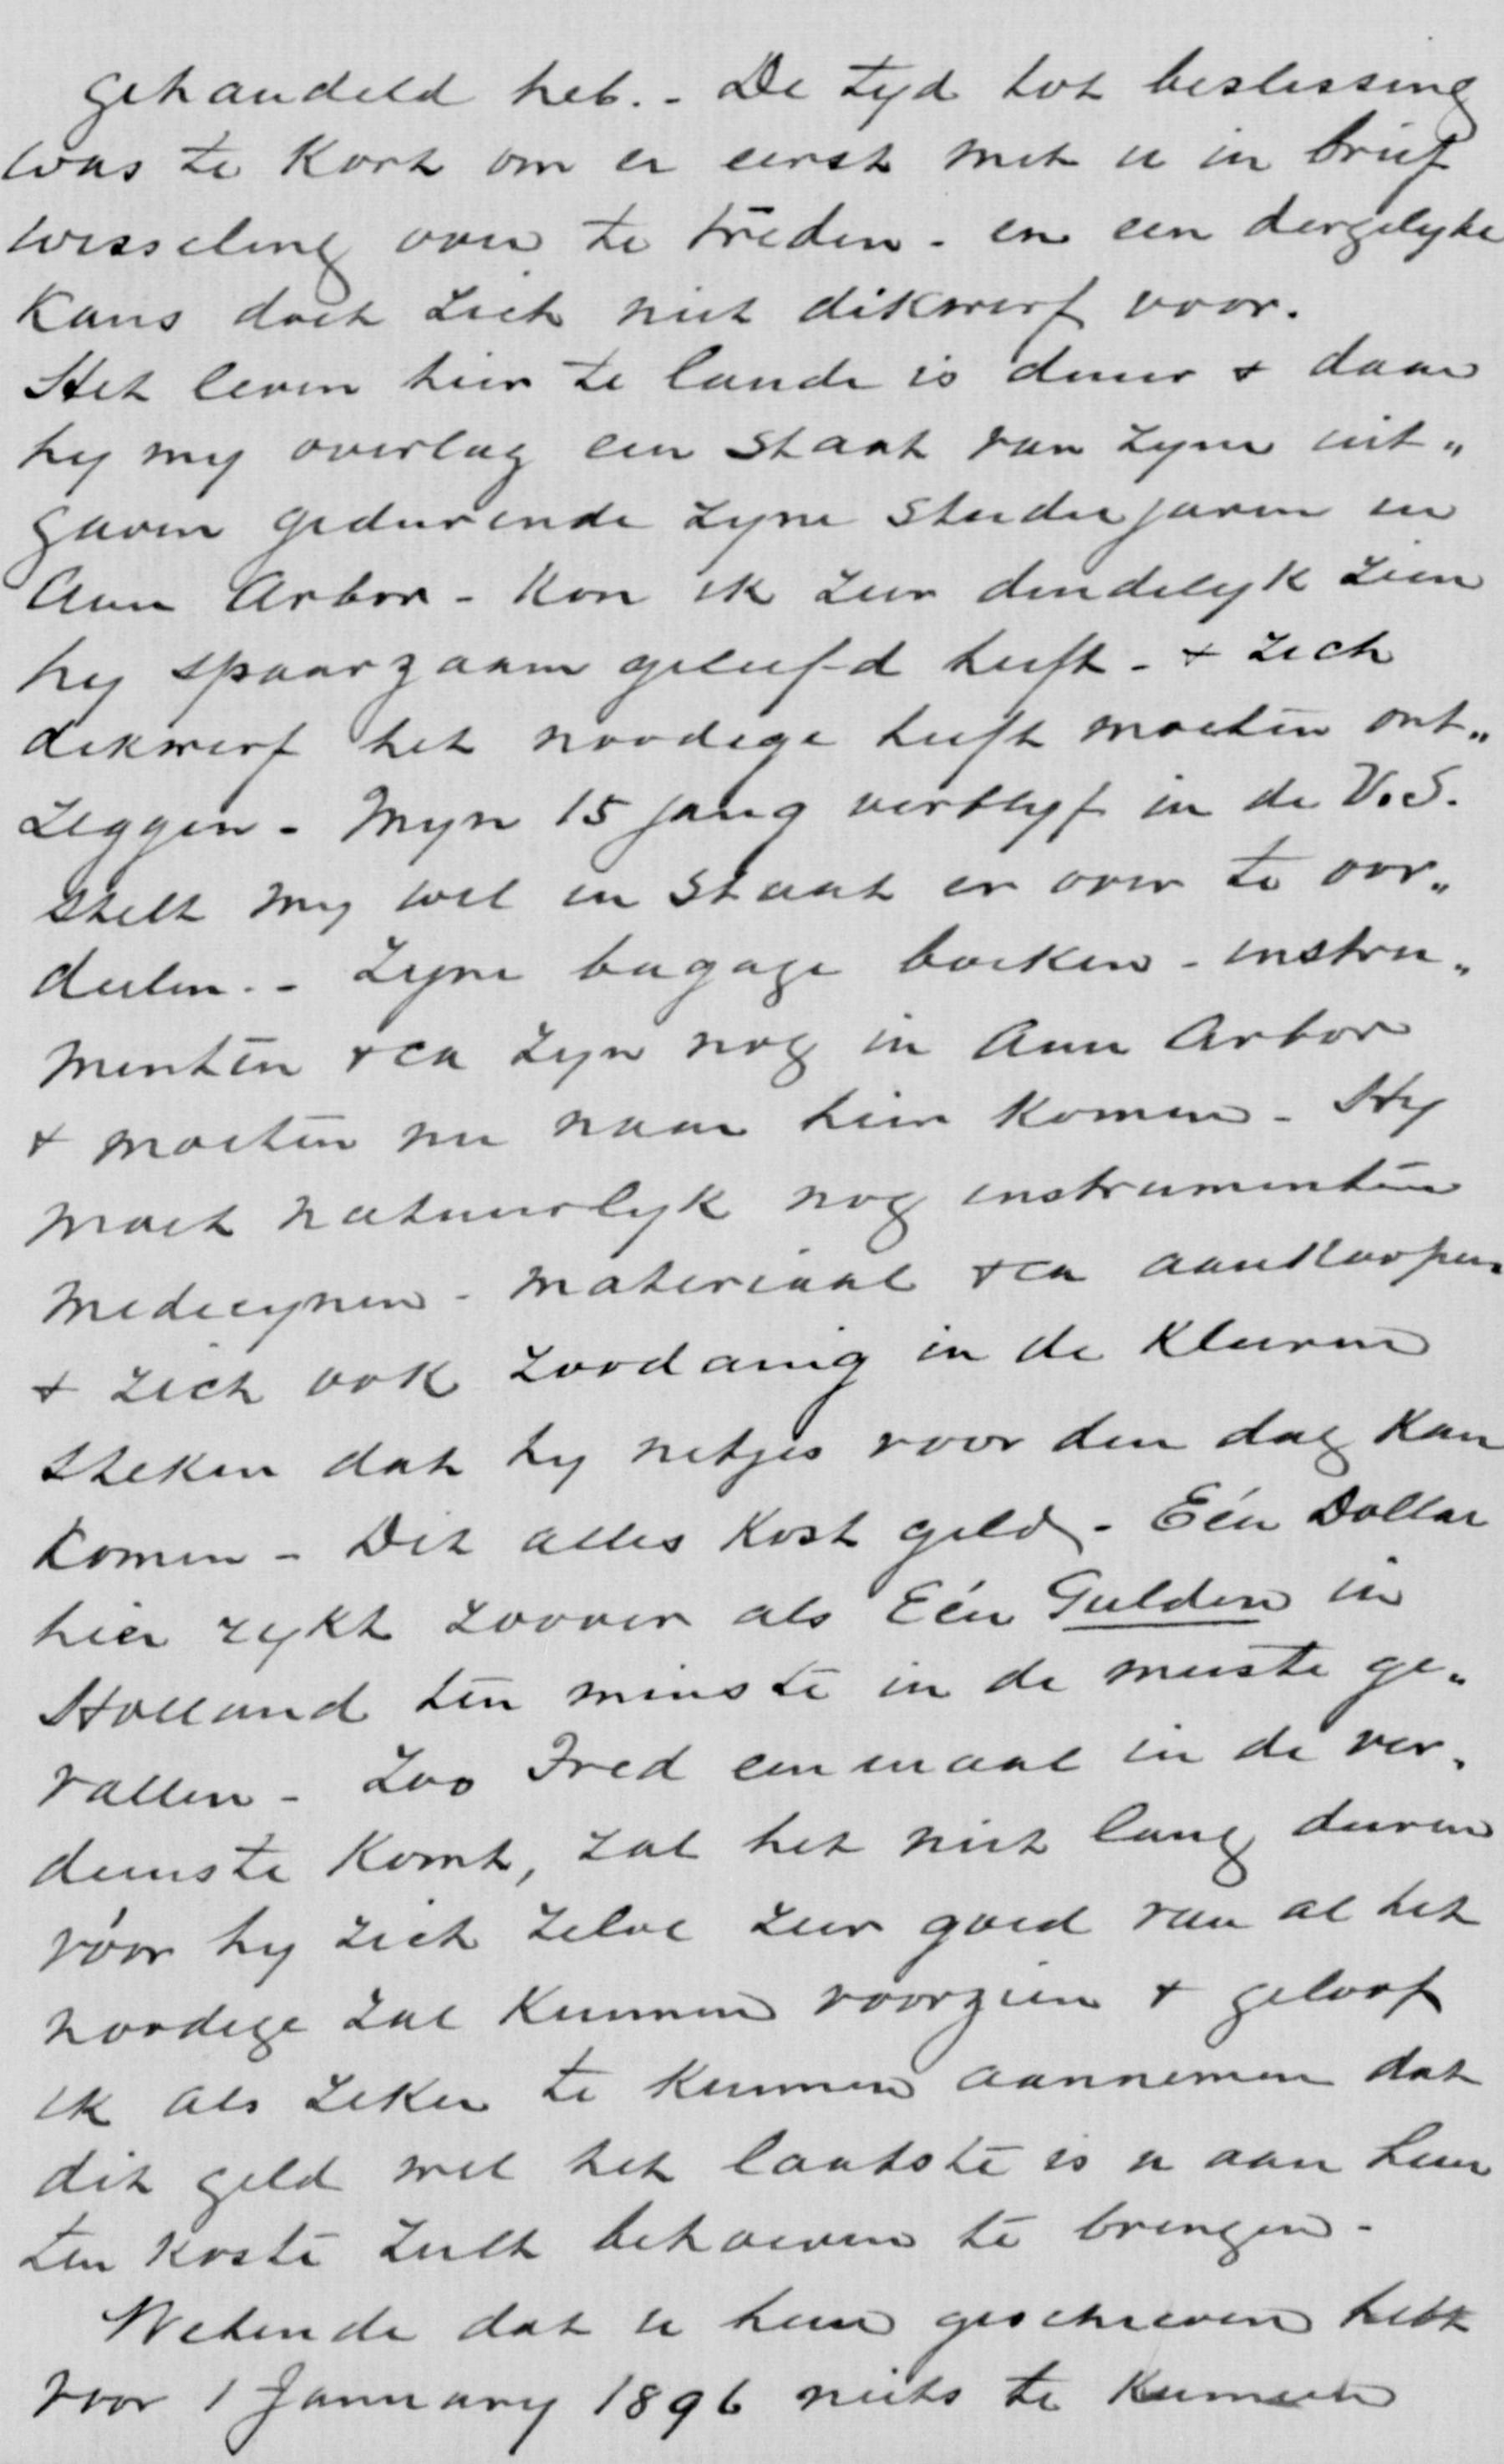 gehandeld heb. - De tyd tot beslissing
was te kort om er eerst met u in brief
wisseling over te treden - en een dergelyke
kans doet zich niet dikwerf voor.
Het leven hier te lande is duur & daar
hy my overlag een staat van zyne uit„
gaven gedurende zyne studiejaren in
Ann Arbor - kon ik zeer duidelyk zien
hy spaarzaam geleefd heeft - & zich
dikwerf het noodige heeft moeten ont„
zeggen - Myn 15 jarig verblyf in de V.S.
stelt my wel in staat er over te oor„
deelen. - Zyne bagage boeken - instru„
menten &ca zyn nog in Ann Arbor
& moeten nu naar hier komen - Hy
moet natuurlyk nog instrumenten
medicynen - materiaal &ca aankoopen
& zich ook zoodanig in de kleeren
steken dat hy netjes voor den dag kan
komen - Dit alles kost geld - Eén Dollar
hier rykt zoover als Eén Gulden in
Holland ten minste in de meeste ge„
vallen - Zoo Fred eenmaal in de ver„
dienste komt, zal het niet lang duren
vóór hy zich zelve zeer goed van al het
noodige zal kunnen voorzien & geloof
ik als zeker te kunnen aannemen dat
dit geld wel het laatste is u aan hem
ten koste zult behoeven te brengen -
Wetende dat u hem geschreven hebt
voor 1 January 1896 niets te kunnen